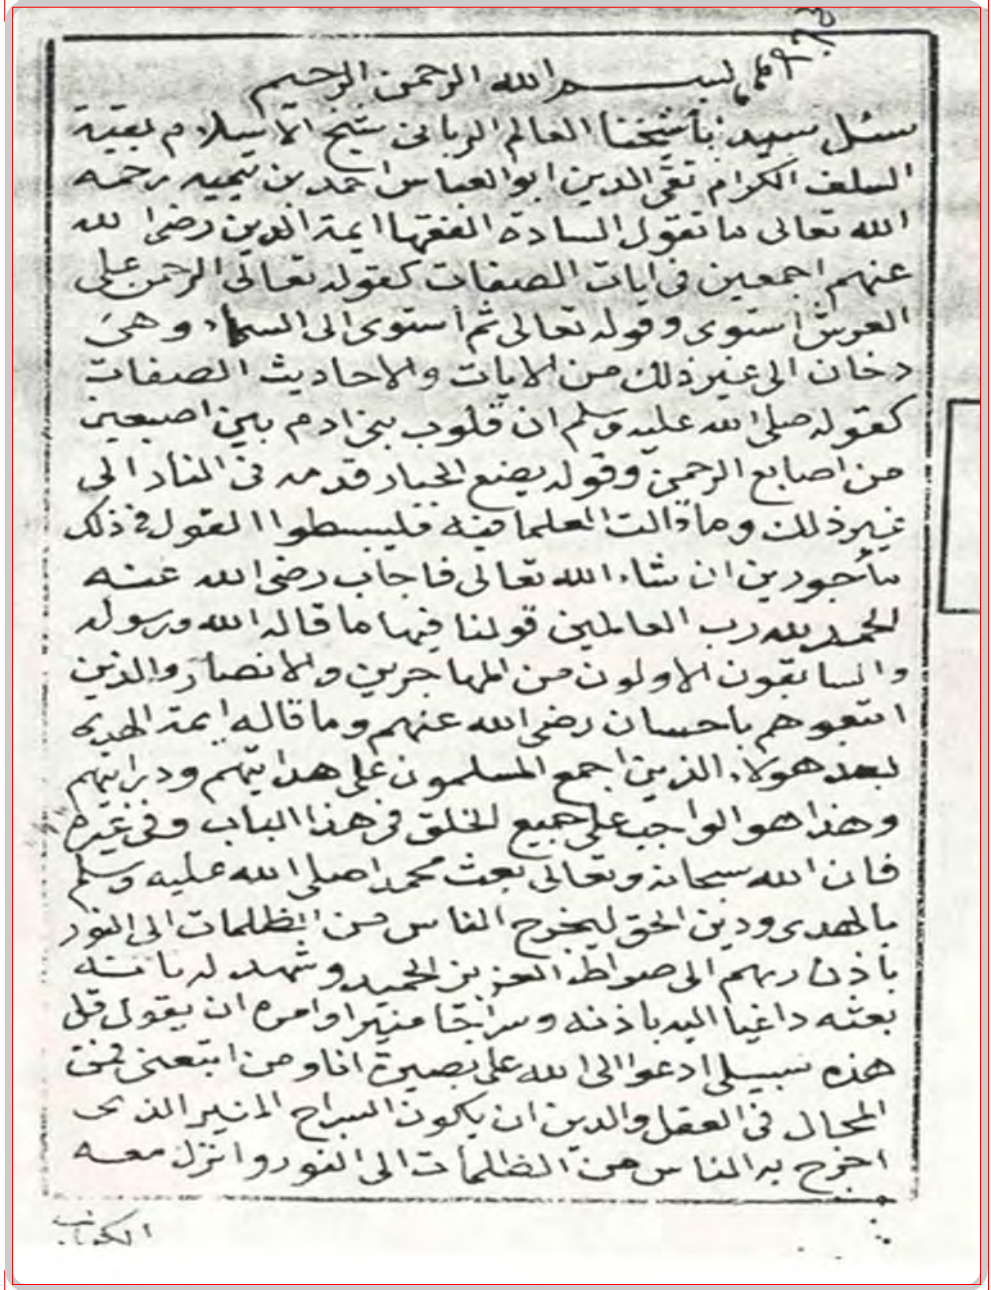 بسم الله الرحمن الرحيم
سئل سيدنا شيخنا العالم الرباني شيخ الاسلام بقية
السلف الكرام تقي الدين ابو العباس احمد بن تيميه رحمه
الله تعالى ما تقول السادة الفقها ايمة الدين رضي الله
عنهم اجمعين في ايات الصفات كقوله تعالى الرحمن على
العرش استوى وقوله تعالى ثم استوى الى السماء وهي
دخان الى غير ذلك من الايات والاحاديث الصفات
كقوله صلى الله عليه وسلم ان قلوب بني ادم بين اصبعين
من اصابع الرحمن وقوله يضع الجبار قدمه في النار الى
غير ذلك وما قالت العلما فيه فليبسطوا القول في ذلك
مأجورين ان شاء الله تعالى فاجاب رضي الله عنه
الحمد لله رب العالمين قولنا فيها ما قاله الله ورسوله
والسابقون الاولون من المهاجرين والانصار والذين
اتبعوهم باحسان رضي الله عنهم وما قاله ايمة الهدى
بعد هولاء الذين اجمع المسلمون على هدايتهم ودرايتهم
وهذا هو الواجب على جميع الخلق في هذا الباب وفي غيره
فان الله سبحانه وتعالى بعث محمدا صلى الله عليه وسلم
بالهدى ودين الحق ليخرج الناس من الظلمات الى النور
باذن ربهم الى صراط العزيز الحميد وشهد له بانه
بعثه داعيا اليه باذنه وسراجا منيرا وامره ان يقول قل
هذه سبيلي ادعوا الى الله على بصيرة انا ومن اتبعني فمن
المحال في العقل والدين ان يكون السراج المنير الذي
اخرج به الناس من الظلمات الى النور وانزل معه
الكتاب